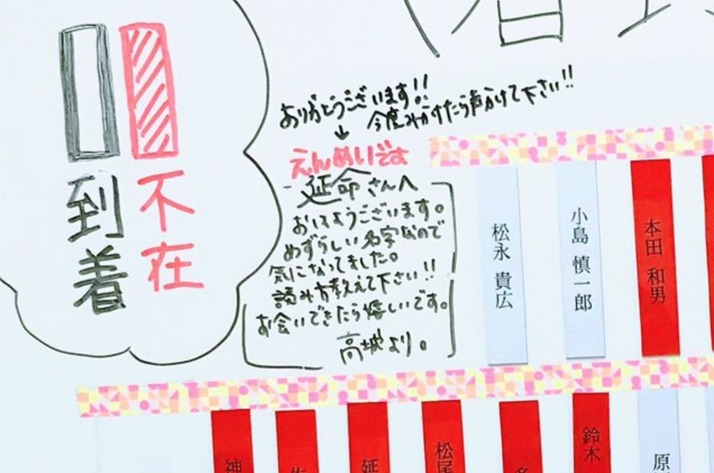 不在
到着
ありがとうございます!!
今度みかけたら声かけて下さい!!
↓
えんめいです
延命さんへ
おはようございます。
めずらしい名字なので
気になってました。
読み方教えて下さい!!
お会いできたら嬉しいです。
高城より。
松永 貴広
小島 慎一郎
本田 和男
神
延
松尾
鈴木
原